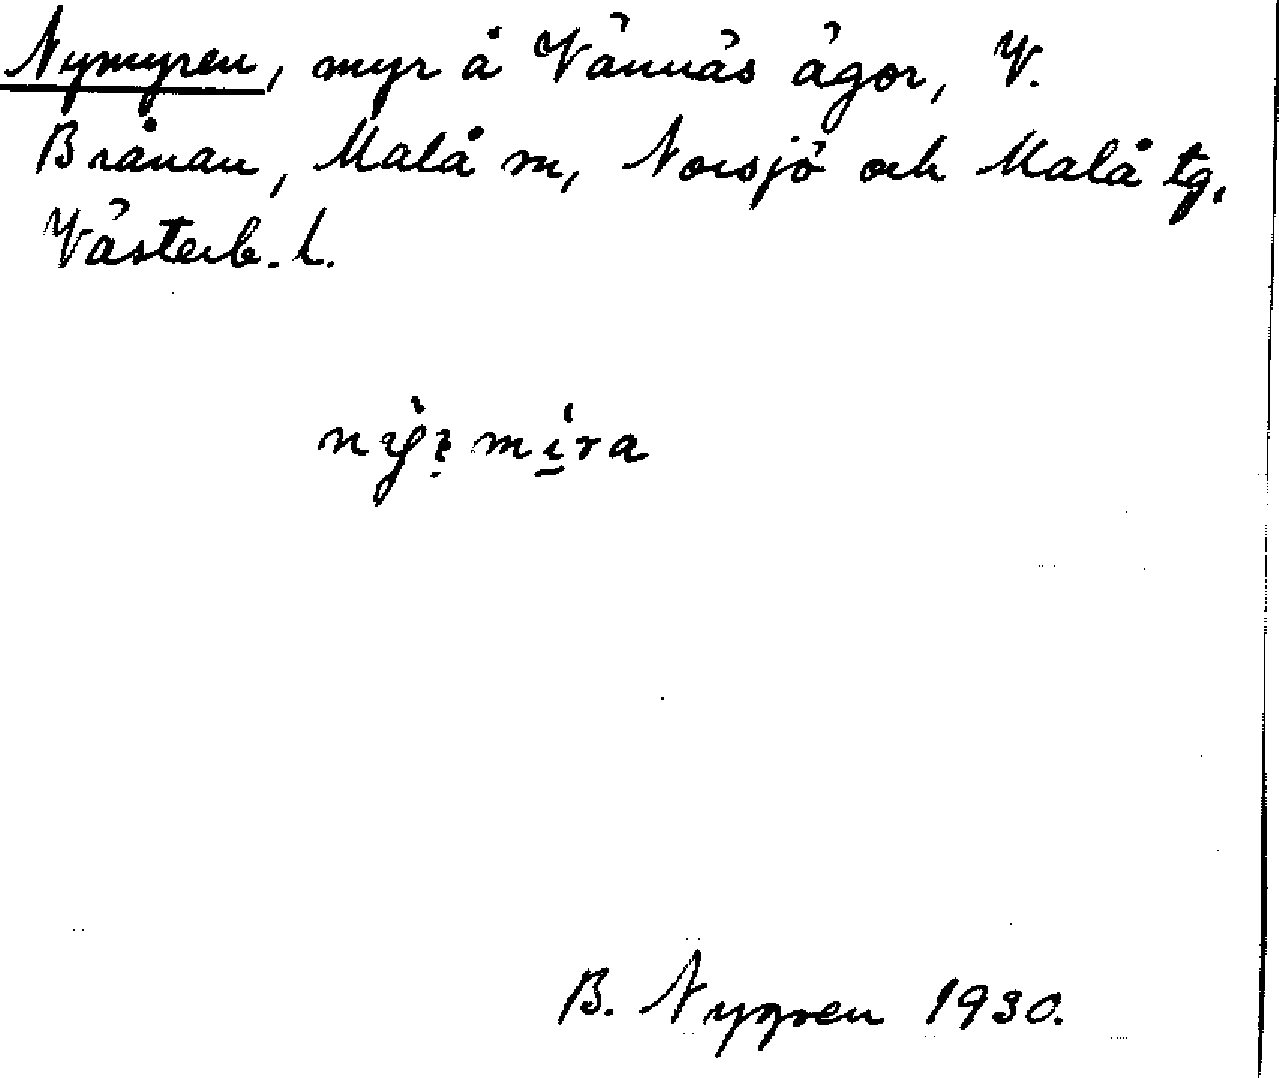 Nymyren, myr å Vännäs ägor, V.
Brånan, Malå sn, Norsjö och Malå tg,
Västerb. l.
B. Nygren 1930.